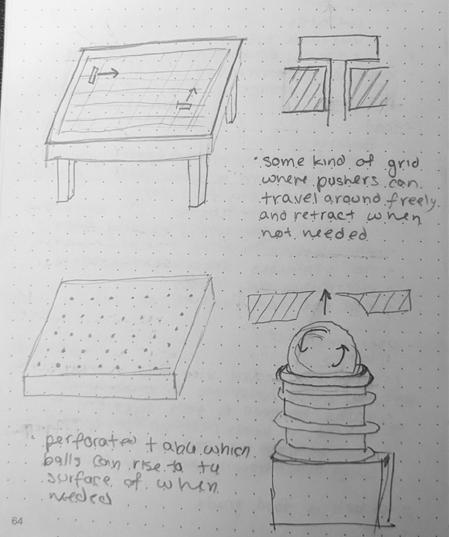 some kind of grid
where pushers can
travel around freely
and retract when
not needed
perforated table which
balls can rise to te
surface of when
needed
64